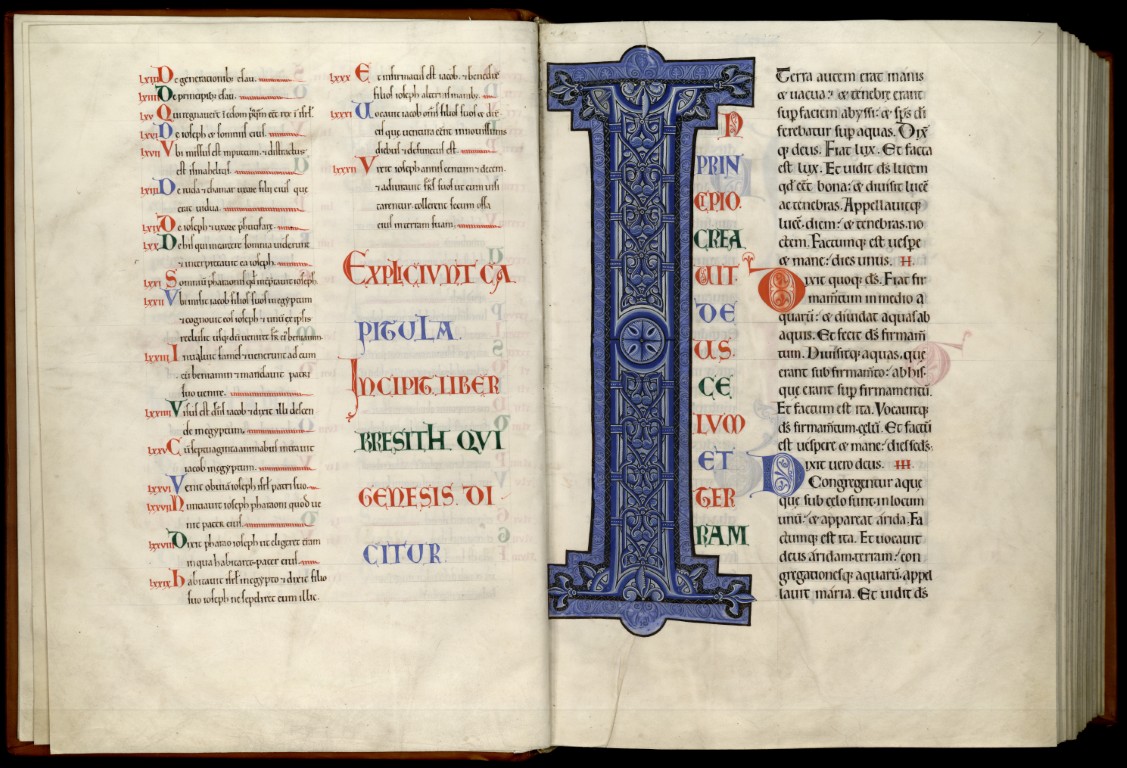 LXIII De generationib; esau.
LXIIII De principib; esau.
LXV Qui regnauer̄t ī edom p̄mqm̄ eēt rex ī isrl̄.
LXVI De ioseph & somnus eius.
LXVII Vbi missus est inputeum. & distractus
est ismahelitis.
LXVIII De iuda & thamar uxore filij eius que
erat uidua.
LXIX De ioseph & uxore phutifaris.
LXX De his qui incarcere somnia uiderunt
& interpretatur ea ioseph.
LXXI Somniū pharaonis qd̄ int̄ptatur ioseph.
LXXII Vbi misit iacob filios suos inegyptum
& cognouit eos ioseph & unū ex ipsis
LXXIII Inualuit fames & uenerunt ad eum
cū beniamin & mandauit patri
suo uenire.
LXXIIII Visus est dn̄s iacob & dixit illi descen
de inegyptum.
LXXV Cū septuaginta animabus intrauit
iacob inegyptum.
LXXVI Venit obuiā ioseph sr̄l patri suo.
LXXVII Nuntiauit ioseph pharaoni quod ue
nit pater eius.
LXXVIII Dixit pharao ioseph ut eligeret etiam
in qua habitaret pater eius.
LXXIX Habitauit sr̄l inegypto & dixit filio
suo ioseph ne sepeliret eum illic.
LXXX Et infirmatus est iacob. & benedixit
filios ioseph alternis manib;.
LXXXI Uocauit iacob om̄s filios suos & dix
eis que uentura eēnt innouissimis
dieb; & defunctus est.
LXXXII Vixit ioseph annis centum & decem.
& adiurauit fr̄s suos ut cum uisi
tarentur tollerent secum ossa
eius in terram suam.
EXPLICIVNT CA
PITULA
INCIPIT LIBER
BRESITH QVI
GENESIS DI
CITUR
IN
PRIN
CIPIO.
CREA
UIT.
DE
US.
CE
LVM
ET
TER
RAM
Terra autem erat inanis
& uacua: & tenebre erant
sup faciem abyssi: & sp̄s dī
ferebatur sup aquas. Dix̄
q; deus. Fiat lux. Et facta
est lux. Et uidit ds̄ lucem
qd̄ eēt bona: & diuisit lucē
ac tenebras. Appellauitq;
lucē diem: & tenebras no
ctem. Factumq; est uespe
& mane: dies unus. II.
Dixit quoq; ds̄. Fiat fir
mam̄tum in medio a
quarū: & diuidat aquas ab
aquis. Et fecit ds̄ firmam̄
tum. Diuisitq; aquas. que
erant sub firmam̄to: ab his.
que erant sup firmamentū.
Et factum est ita. Vocauitq;
ds̄ firmam̄tum celū. Et factū
est uespere & mane: dies scds̄.
Dixit uero deus. III.
Congregentur aque
que sub celo sunt in locum
unū: & appareat arida. Fa
ctumq; est ita. Et uocauit
deus aridam terram: con
gregationesq; aquarū appel
lauit maria. Et uidit ds̄